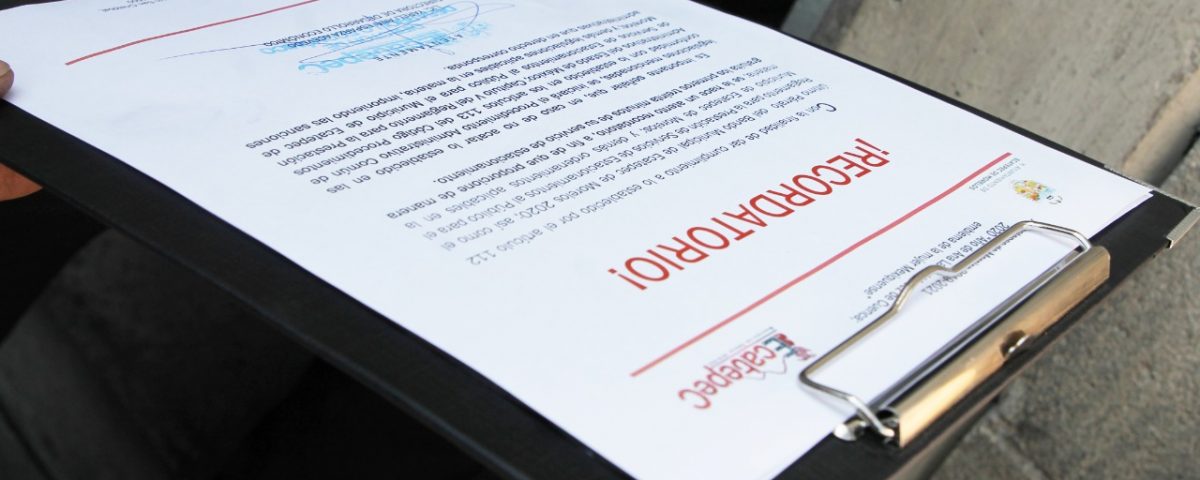 AYUNTAMIENTO DE
ECATEPEC DE MORELOS
2021
2020 "Año de
de Cuenca,
emblema de la mujer Mexiquense"
Ecatepec
¡RECORDATORIO!
Con la finalidad de dar cumplimiento a lo establecido por el artículo 112
último párrafo del Bando Municipal De Ecatepec de Morelos 2020; así como el
reglamento para la Prestación de Servicios de Estacionamientos al Público para el
Municipio de Ecatepec de Morelos; y demás ordenamientos aplicables en la
materia se le hace un atento recordatorio a fin de que proporcione de manera
gratuita los primeros minutos de su servicio de estacionamiento.
Es importante señalar que en caso de no acatar lo establecido en las
legislaciones mencionadas, se iniciará el Procedimiento Administrativo Común de
conformidad con lo establecido en los artículos 113 del Código de Procedimientos
Administrativos del Estado de México, Capítulo V del Reglamento para la Prestación
de Servicios de Estacionamientos al Público para el Municipio de Ecatepec de
Morelos; y demás legislaciones aplicables en la materia, imponiendo las sanciones
administrativas que en derecho corresponda.
ATENTAMENTE
DIRECTOR DE DESARROLLO ECONÓMICO